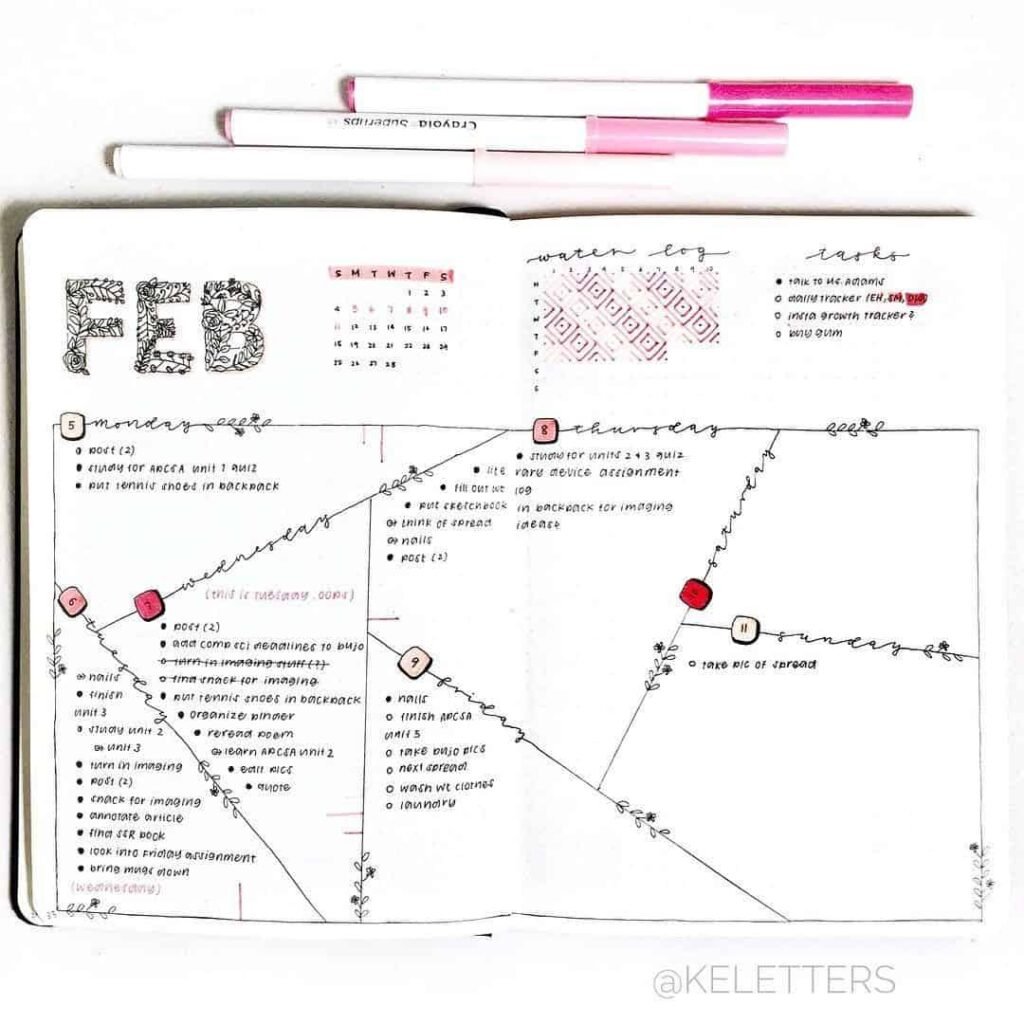 Crayola SuperTips
FEB
S M T W T F S
1 2 3
4 5 6 7 8 9 10
11 12 13 14 15 16 17
18 19 20 21 22 23 24
25 26 27 28
water log
1 2 3 4 5 6 7 8 9 10
M
T
W
T
F
S
S
tasks
talk to Ms. Adams
daily tracker (EH, SM, DIB)
insta growth tracker?
buy gum
5 monday
post (2)
study for APCSA unit 1 quiz
put tennis shoes in backpack
6 tuesday
nails
finish
unit 3
study unit 2
unit 3
turn in imaging
post (2)
snack for imaging
annotate article
find SSR book
look into Friday assignment
bring mugs down
(wednesday)
7 wednesday
(this is tuesday .oops)
post (2)
add comp sci deadlines to bujo
turn in imaging stuff (?)
find snack for imaging
put tennis shoes in backpack
organize binder
reread poem
learn APCSA unit 2
edit pics
quote
8 thursday
study for units 2+3 quiz
lite rary device assignment
fill out wt log
put sketchbook in backpack for imaging
think of spread ideas
nails
post (2)
9 friday
nails
finish APCSA
unit 3
take bujo pics
next spread
wash wt clothes
laundry
saturday
11 sunday
take pic of spread
@KELETTERS